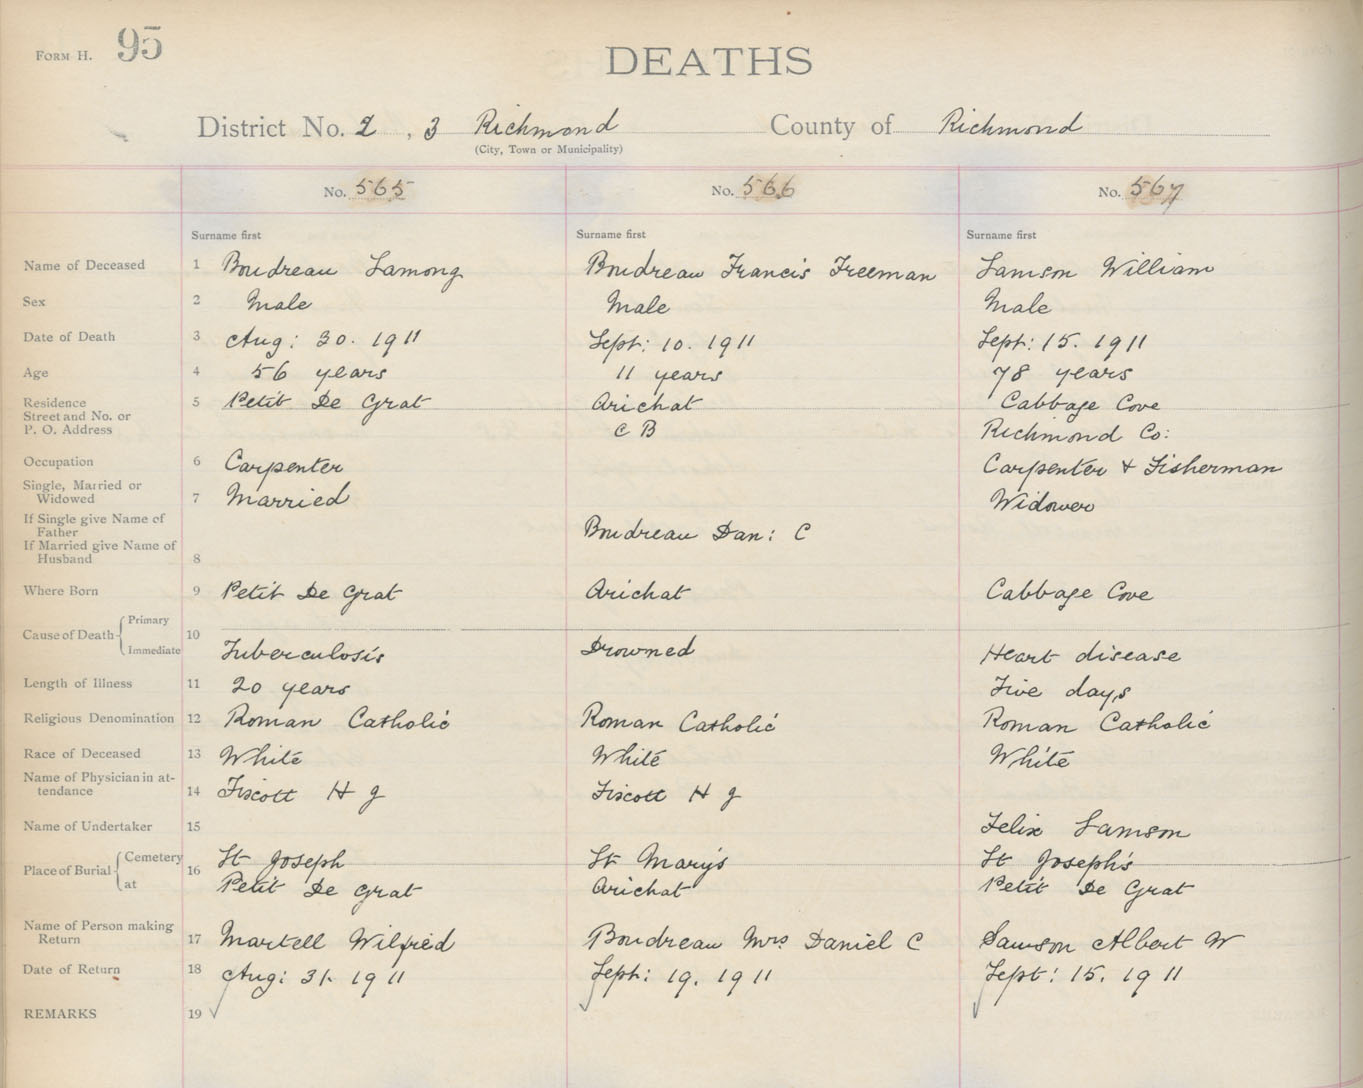 FORM H. 95
DEATHS
District No. 2, 3 Richmond County of Richmond
(City, Town or Municipality)
No. 565 No. 566 No. 567
Surname first Surname first Surname first
Name of Deceased 1 Boudreau Lamong Boudreau Francis Freeman Samson William
Sex 2 Male Male Male
Date of Death 3 Aug: 30. 1911 Sept: 10. 1911 Sept: 15. 1911
Age 4 56 years 11 years 78 years
Residence 5 Petit De Grat Arichat Cabbage Cove
Street and No. or
P. O. Address C B Richmond Co:
Occupation 6 Carpenter Carpenter & Fisherman
Single, Married or
Widowed 7 Married Widower
If Single give Name of
Father Boudreau Dan: C
If Married give Name of
Husband 8
Where Born 9 Petit De Grat Arichat Cabbage Cove
Primary
Cause of Death 10
Immediate Tuberculosis Drowned Heart disease
Length of Illness 11 20 years Five days
Religious Denomination 12 Roman Catholic Roman Catholic Roman Catholic
Race of Deceased 13 White White White
Name of Physician in at-
tendance 14 Fiscott H J Fiscott H J
Name of Undertaker 15 Felix Samson
Place of Burial Cemetery 16 St Joseph St Mary's St Joseph's
at Petit De Grat Arichat Petit De Grat
Name of Person making
Return 17 Martell Wilfred Boudreau Mrs Daniel C Samson Albert W
Date of Return 18 Aug: 31. 1911 Sept: 19. 1911 Sept: 15. 1911
REMARKS 19